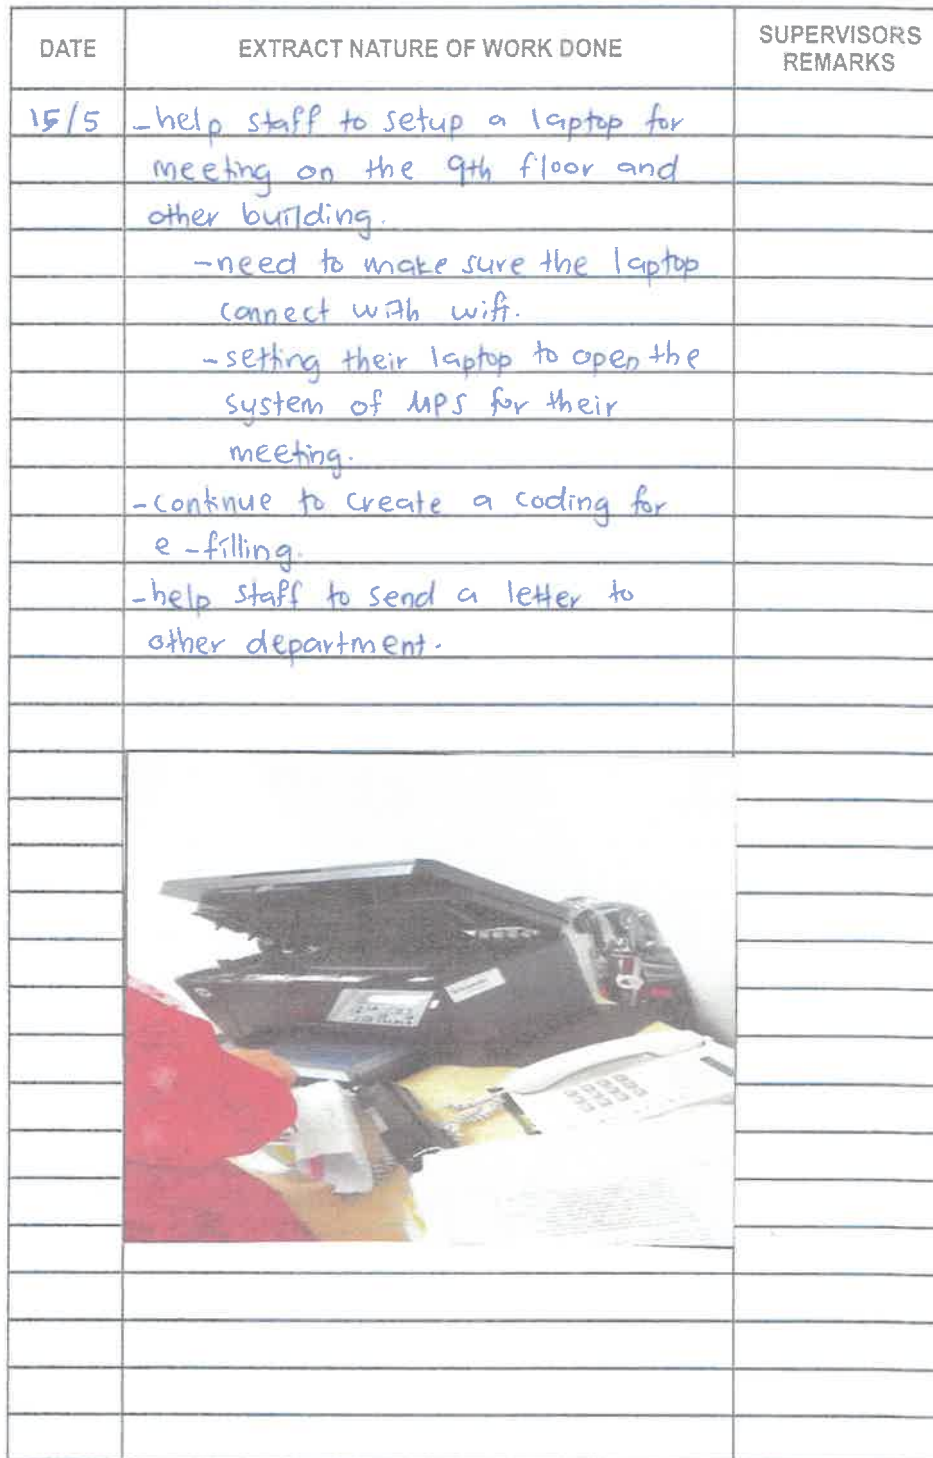 DATE
EXTRACT NATURE OF WORK DONE
SUPERVISORS
REMARKS
15/5
-help staff to setup a laptop for
meeting on the 9th floor and
other building.
-need to make sure the laptop
connect with wifi.
-setting their laptop to open the
system of MPS for their
meeting.
-continue to create a coding for
e-filling.
-help staff to send a letter to
other department.